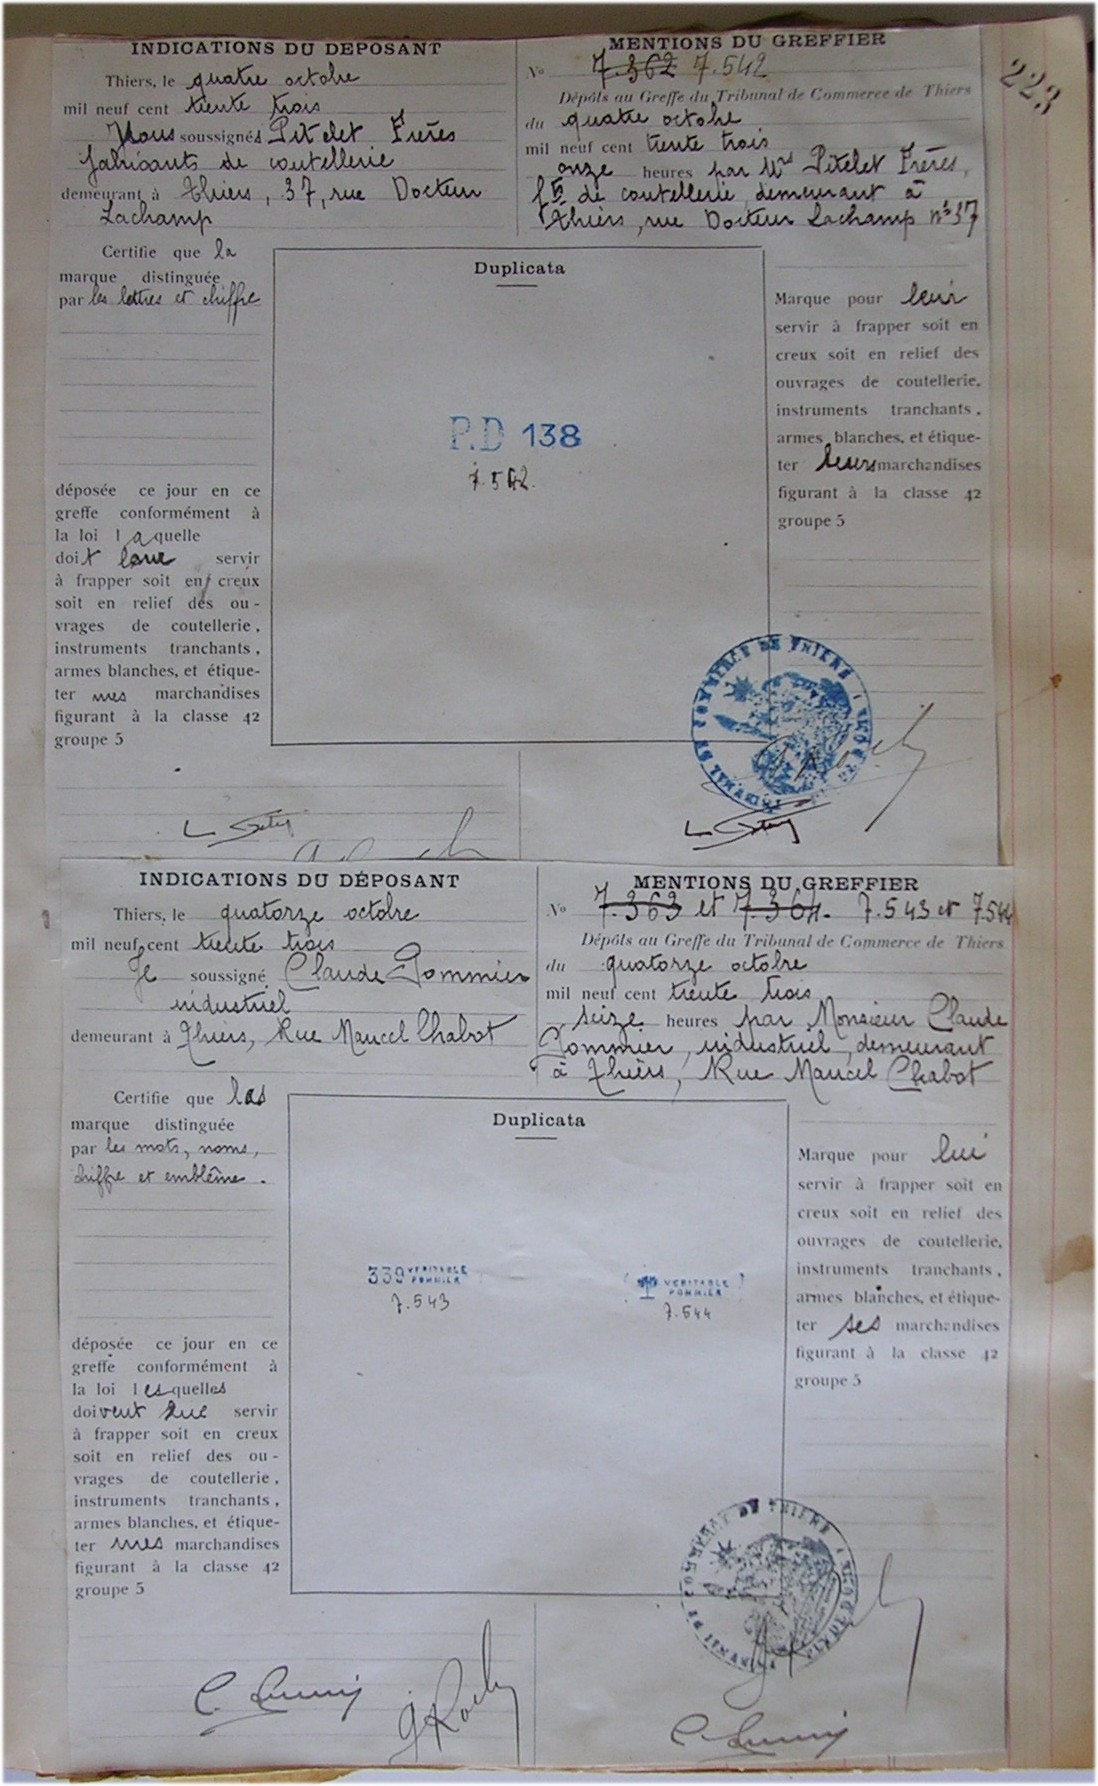 223
INDICATIONS DU DÉPOSANT
Thiers, le quatre octobre
mil neuf cent trente trois
Nous soussignés Pitelet Frères
fabricants de coutellerie
demeurant à Thiers, 37, rue Docteur
Lachamp
MENTIONS DU GREFFIER
No 7.362 7.542
Dépôts au Greffe du Tribunal de Commerce de Thiers
du quatre octobre
mil neuf cent trente trois
onze heures par Mrs Pitelet Frères,
fts de coutellerie, demeurant à
Thiers, rue Docteur Lachamp no 37
Certifie que la
marque distinguée
par les lettres et chiffre
déposée ce jour en ce
greffe conformément à
la loi laquelle
doit leur servir
à frapper soit en creux
soit en relief des ou-
vrages de coutellerie,
instruments tranchants,
armes blanches, et étique-
ter mes marchandises
figurant à la classe 42
groupe 5
Duplicata
P.D 138
7.542.
Marque pour leur
servir à frapper soit en
creux soit en relief des
ouvrages de coutellerie,
instruments tranchants,
armes blanches, et étique-
ter leurs marchandises
figurant à la classe 42
groupe 5
TRIBUNAL DE COMMERCE DE THIERS
INDICATIONS DU DÉPOSANT
Thiers, le quatorze octobre
mil neuf cent trente trois
Je soussigné Claude Pommier
industriel
demeurant à Thiers, Rue Marcel Chabot
MENTIONS DU GREFFIER
No 7.363 et 7.364. 7.543 et 7.544
Dépôts au Greffe du Tribunal de Commerce de Thiers
du quatorze octobre
mil neuf cent trente trois
seize heures par Monsieur Claude
Pommier, industriel, demeurant
à Thiers, Rue Marcel Chabot
Certifie que las
marque distinguée
par les mots, noms,
chiffre et emblême.
déposée ce jour en ce
greffe conformément à
la loi lesquelles
doivent me servir
à frapper soit en creux
soit en relief des ou-
vrages de coutellerie,
instruments tranchants,
armes blanches, et étique-
ter mes marchandises
figurant à la classe 42
groupe 5
Duplicata
339 VERITABLE
POMMIER
7.543
VERITABLE
POMMIER
7.544
Marque pour lui
servir à frapper soit en
creux soit en relief des
ouvrages de coutellerie,
instruments tranchants,
armes blanches, et étique-
ter ses marchandises
figurant à la classe 42
groupe 5
TRIBUNAL DE COMMERCE DE THIERS